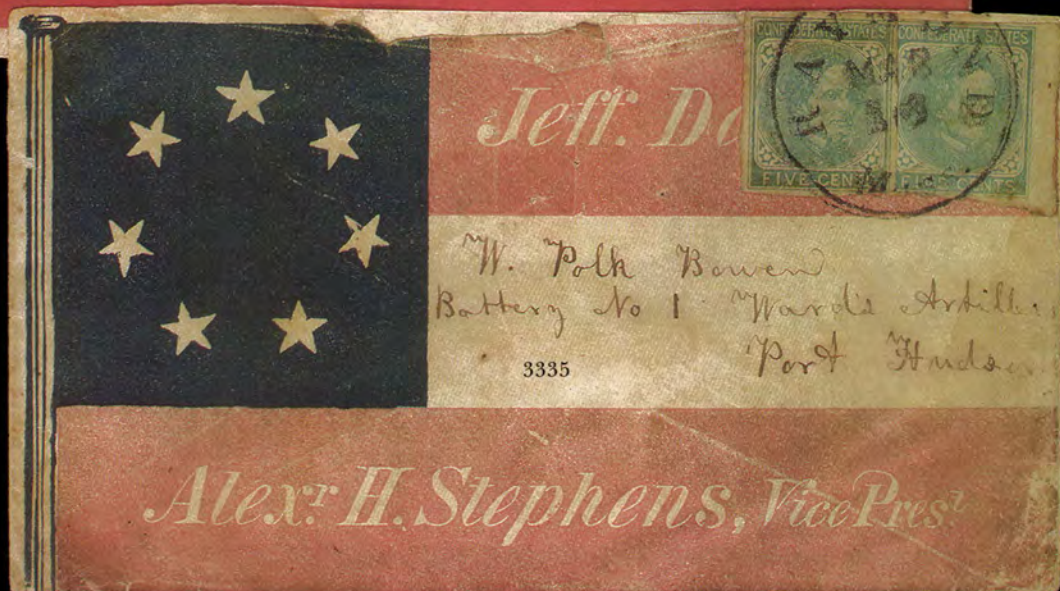 Jeff. Da
CONFEDERATE STATES CONFEDERATE STATES
MAR
FIVE CENTS FIVE CENTS
W. Polk Bowen
Battery No 1 Ward's Artille
Port Hudson
3335
Alex.r H. Stephens, Vice Pres.t